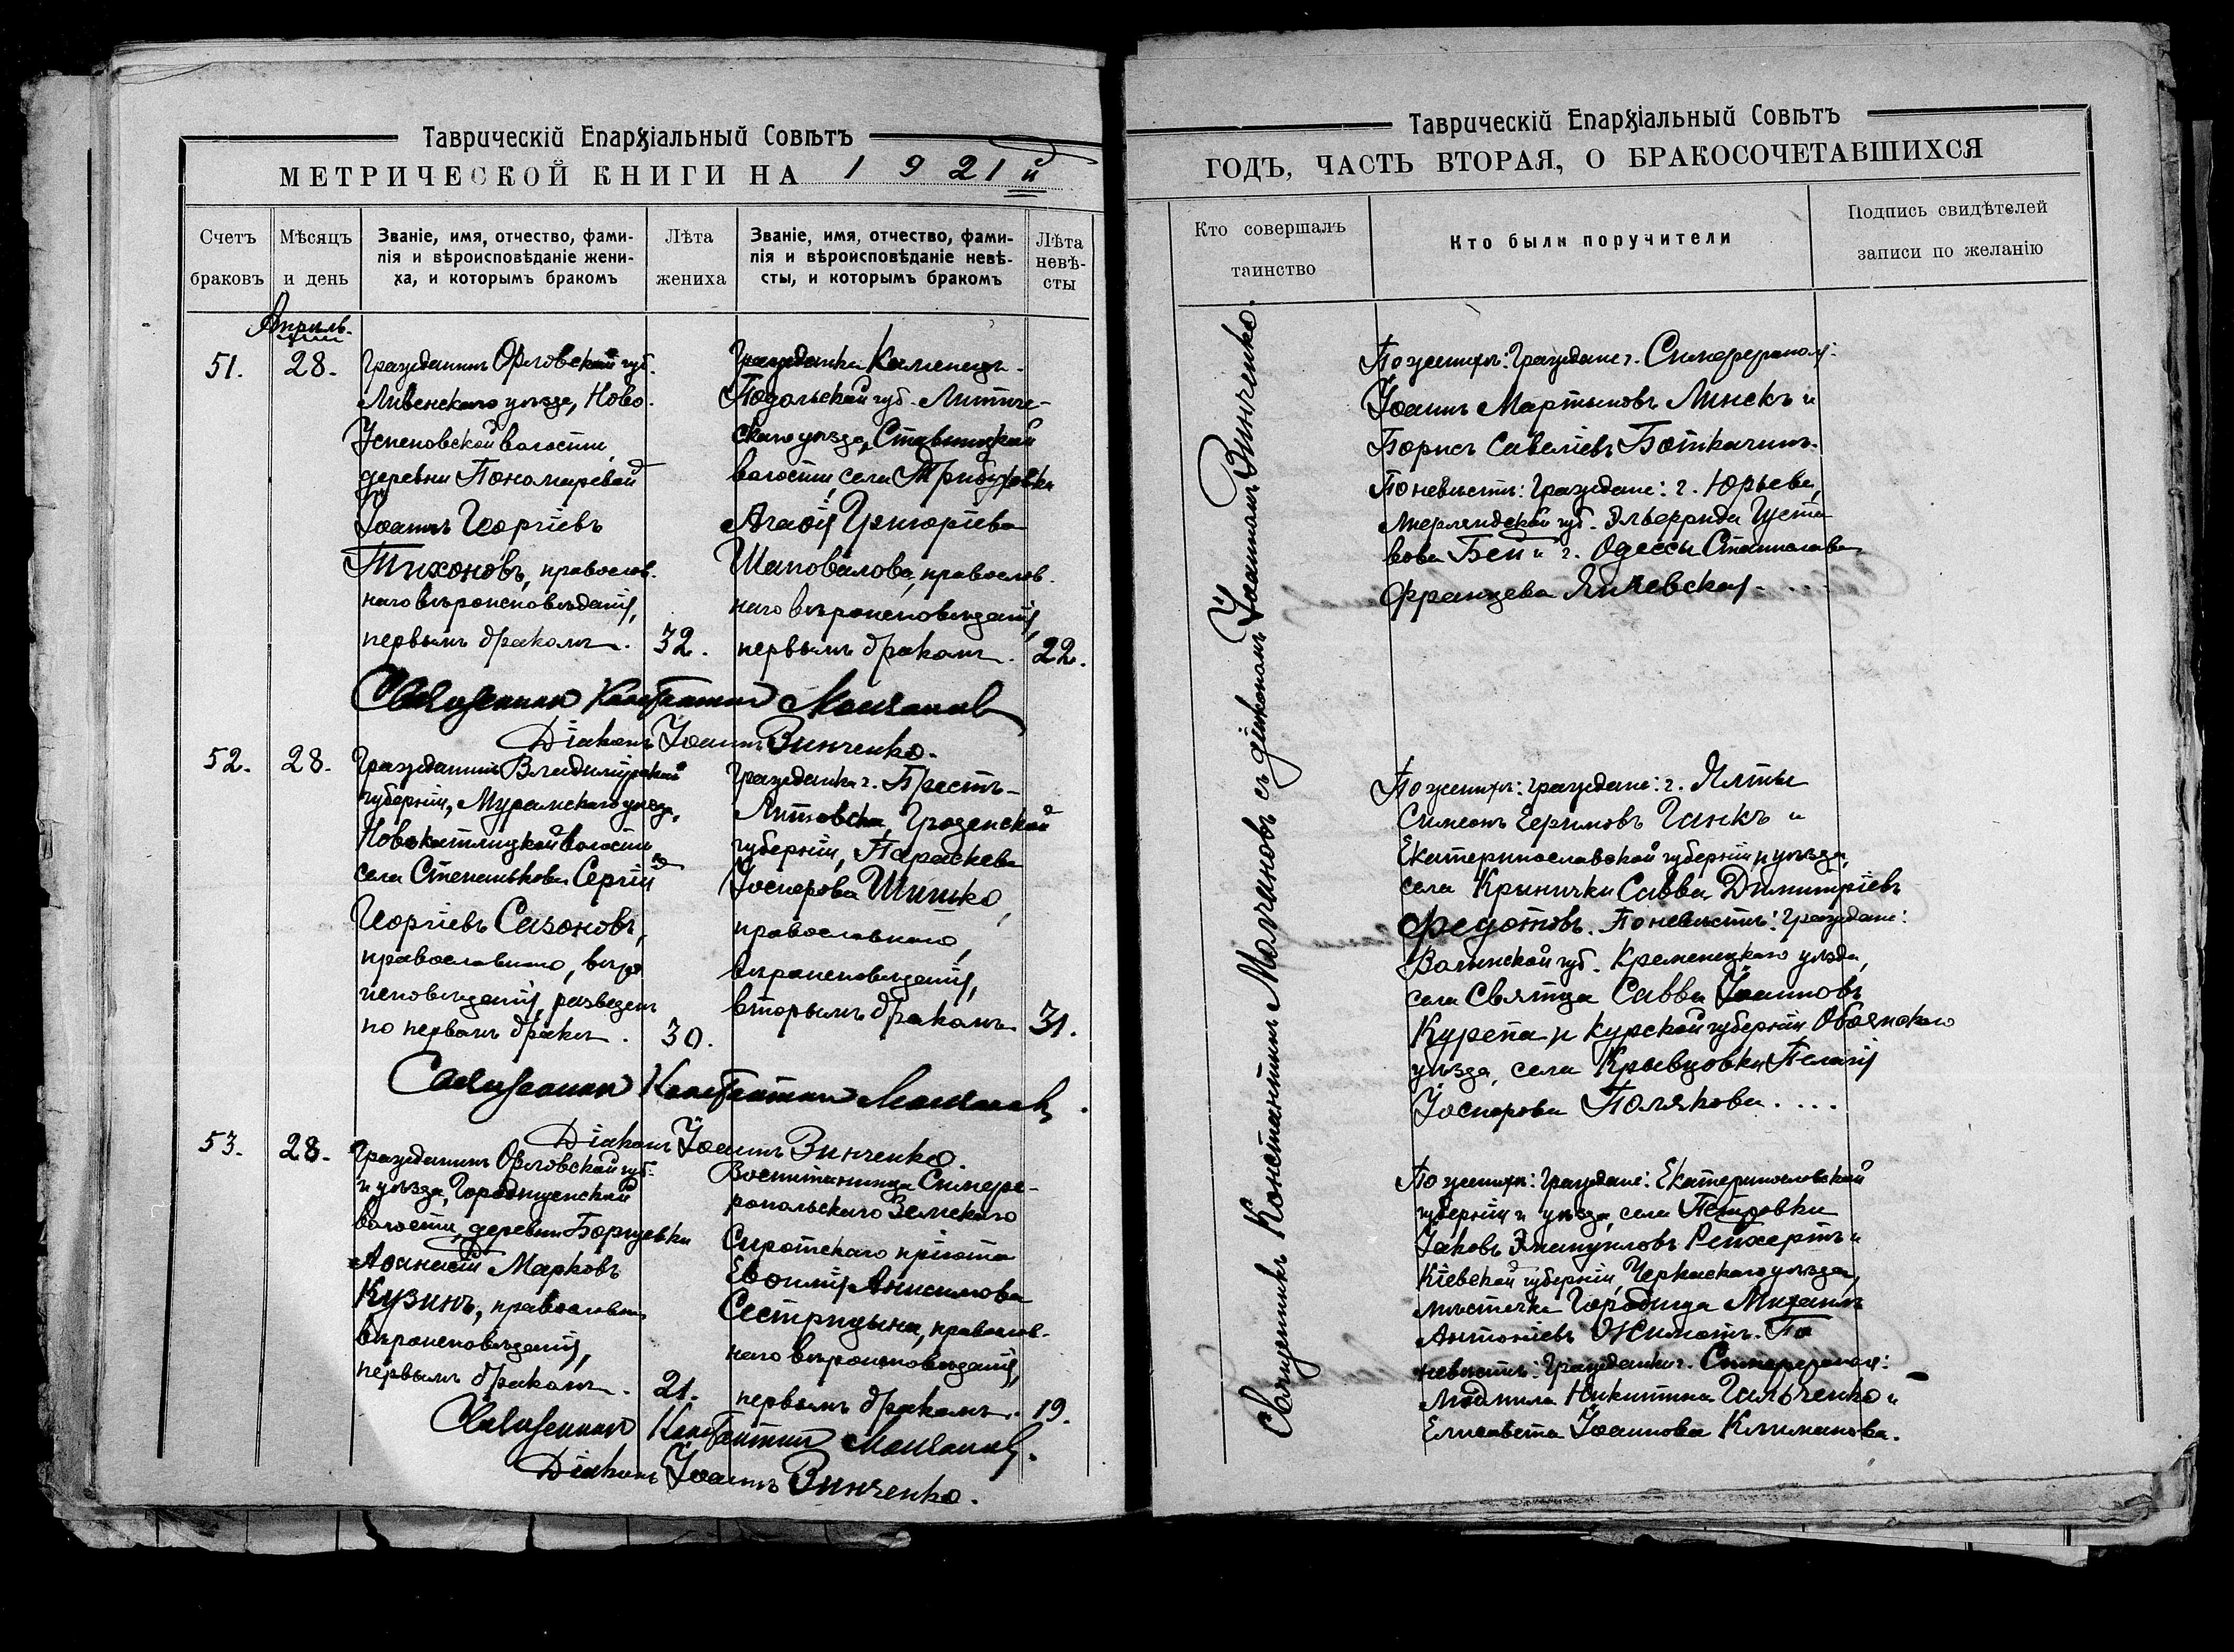 Таврическій Епархіальный Совѣтъ
МЕТРИЧЕСКОЙ КНИГИ НА 1921й
Счетъ браковъ
Мѣсяцъ и день
Званіе, имя, отчество, фами-
лія и вѣроисповѣданіе жени-
ха, и которымъ бракомъ
Лѣта жениха
Званіе, имя, отчество, фами-
лія и вѣроисповѣданіе невѣ-
сты, и которымъ бракомъ
Лѣта
невѣ-
сты
Апрель
51.
28.
Гражданинъ Орловской губ.
Ливенскаго уѣзда, Ново-
Успеновской волости,
деревни Пономаревой
Іоаннъ Георгіевъ
Тихоновъ, православ-
наго вѣроисповѣданія,
первымъ бракомъ.
32.
Гражданка Каменецъ-
Подольской губ. Литине-
скаго уѣзда, Ставницкой
волости, села Трибуховки
Агаѳія Григоріева
Шаповалова, православ-
наго вѣроисповѣданія,
первымъ бракомъ.
22.
Священникъ Константинъ Молчановъ
Діаконъ Іоаннъ Зинченко.
52.
28.
Гражданинъ Владимірской
губерніи, Муромскаго уѣзда,
Новокотлицкой волости
села Степанькова Сергій
Георгіевъ Сазоновъ,
православнаго, вѣро
исповѣданія, разведенъ
по первомъ бракѣ.
30.
Гражданка г. Брестъ-
Литовска, Гроденской
губерніи, Параскева
Іосифова Шишко,
православнаго,
вѣроисповѣданія,
вторымъ бракомъ
31.
Священникъ Константинъ Молчановъ.
Діаконъ Іоаннъ Зинченко.
53.
28.
Гражданинъ Орловской губ.
и уѣзда, Городищенской
волости, деревни Борщевки
Аѳанасій Марковъ
Кузинъ, православн
вѣроисповѣданія,
первымъ бракомъ.
21.
Воспитанница Симфе-
ропольскаго Земскаго
Сиротскаго пріюта
Евѳимія Анисимова
Сестрицына, православ-
наго вѣроисповѣданія,
первымъ бракомъ.
19.
Священникъ Константинъ Молчановъ.
Діаконъ Іоаннъ Зинченко.
Таврическій Епархіальный Совѣтъ
ГОДЪ, ЧАСТЬ ВТОРАЯ, О БРАКОСОЧЕТАВШИХСЯ
Кто совершалъ таинство
Кто были поручители
Подпись свидѣтелей
записи по желанію
Священникъ Константинъ Молчановъ съ діакономъ Іоанномъ Зинченко.
По женихѣ: Граждане г. Симферополя:
Іоаннъ Мартыновъ Линскъ и
Борисъ Савеліевъ Боткачинъ.
По невѣстѣ: Граждане: г. Юрьева,
Лифляндской губ. Эльфрида Густа
вова Бен и г. Одессы Станислава
Францева Яичевская.
По женихѣ: граждане: г. Ялты
Симеонъ Ефимовъ Ганкъ и
Екатеринославской губерніи и уѣзда,
села Крынички Савва Димитріевъ
Федотовъ. По невѣстѣ: Граждане:
Волынской губ. Кременецкаго уѣзда,
села Святца Савва Іоанновъ
Курепа и Курской губерніи Обоянскаго
уѣзда, села Крывцовки Пелагія
Іосифова Полякова....
По женихѣ: Граждане: Екатеринославской
губерніи и уѣзда, села Петровки
Іаковъ Эмануиловъ Рейхертъ и
Кіевской губерніи, Черкаскаго уѣзда,
мѣстечка Городища Михаилъ
Антоніевъ Жилотъ. По
невѣстѣ: Гражданки г. Симферополя:
Людмила Никитина Гильченко и
Елисавета Іоаннова Климанова.